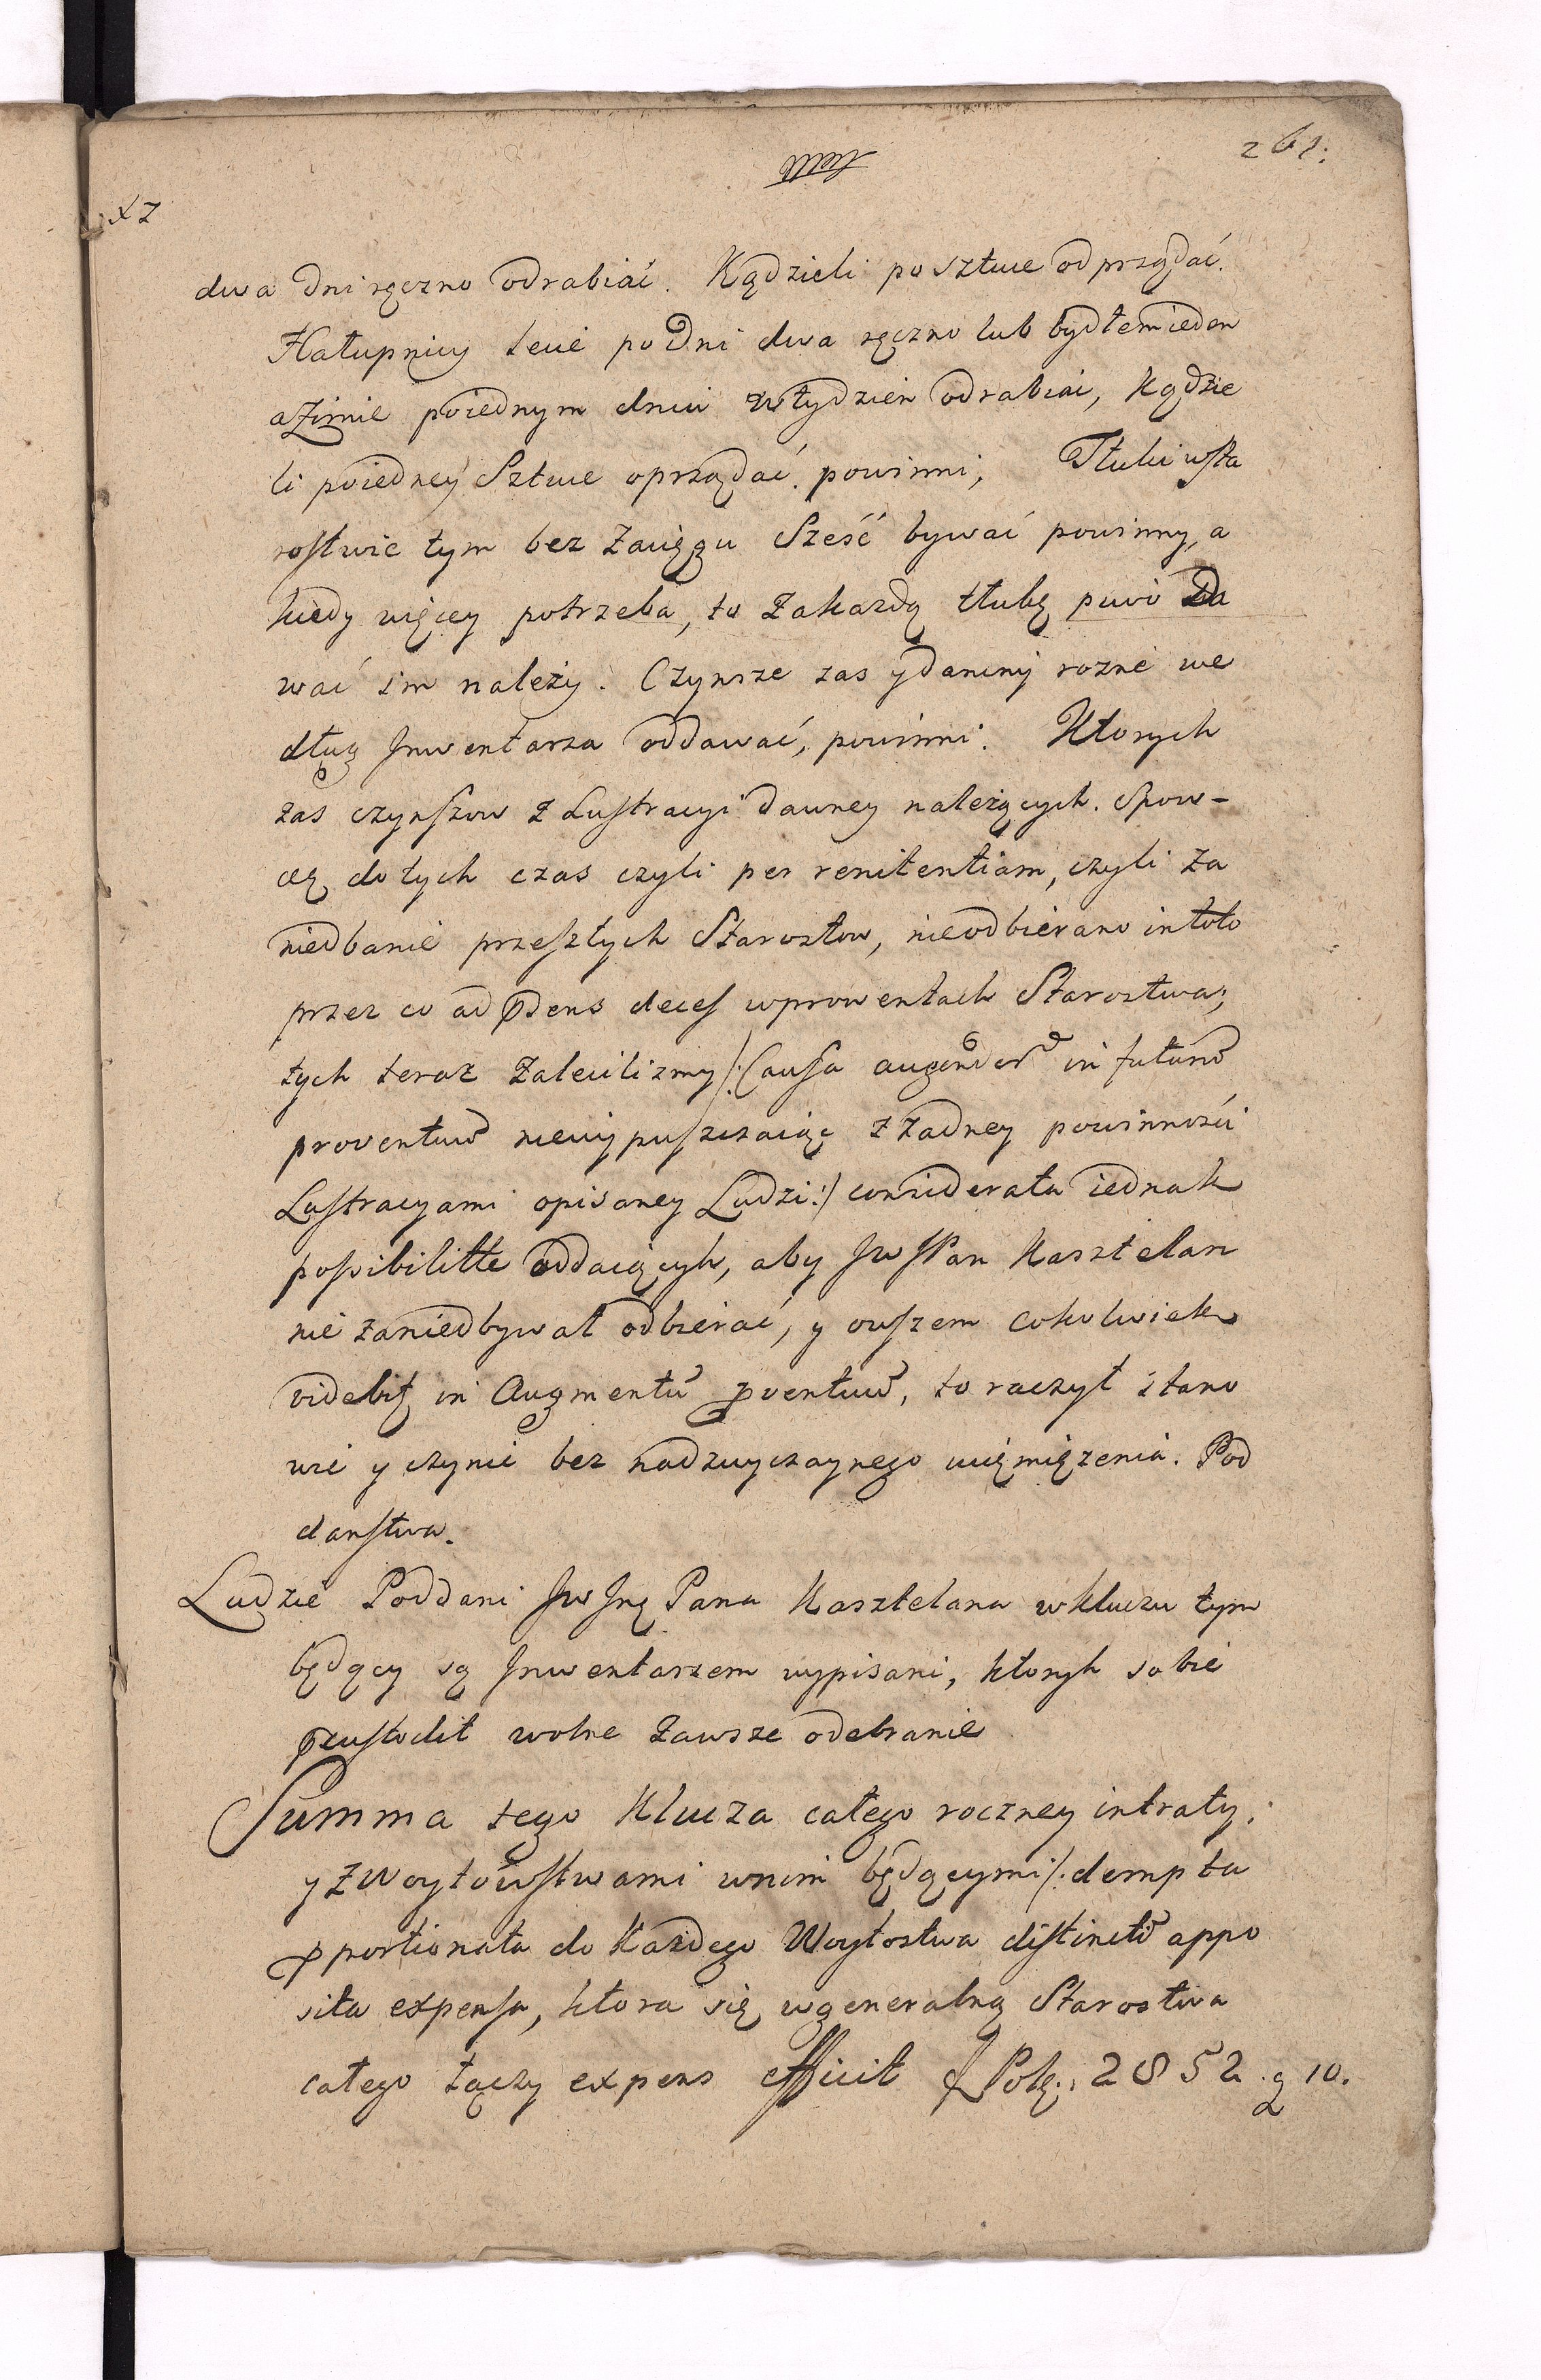 261.
dwa dni ręczno odrabiać. Kądzieli po sztuce odprządać.
Hałupnicy lecie po dni dwa ręczno lub bydłem ieden
a Zimie poiednym dniu w tydzien odrabiać, Kądzie
li poiedney Sztuce oprządać powinni, Tłuki w sta
rostwie tym bez Zaciągu Sześć bywać powinny, a
kiedy więcey potrzeba, to Zakazdą tłukę piwo Da
wać im należy. Czynsze zas y daniny rozne we
dług Inwentarza oddawać, powinni. Ktorych
zas czynszow z Lustracyi dawney należących. Spow-
cę dotych czas czyli per renitentiam, czyli Za
niedbanie przeszłych Starostow, nieodbierano in toto
przez co ad pdens deces w prowentach Starostwa;
tych teraz Zalecilizmy /: Causa augendor in futuru
proventuu niewypuszczaiąc z żadney powinności
Lustracyami opisaney Ludzi :/ considerata iednak
possibilitte oddaiących, aby Jw JPan Kasztelan
nie zaniedbywał odbierać, y owszem cokolwiek
videbit in Augmentu pventuu, to raczył stano
wić y czynić bez nadzwyczaynego uciemiężenia. Pod
danstwa.
Ludzie Poddani Jw Jmę Pana Kasztelana w kluczu tym
będący są Inwentarzem wypisani, ktorych sobie
pcustodit wolne Zawsze odebranie
Summa tego Klucza całego roczney intraty,
y z Woytowstwami w nim będącymi /: dempta
pportionata do Każdego Woytostwa distinctu appo
sita expensa, ktora się w generalną Starostwa
całego łączy expens efficit f Polg: 2852 g 10.